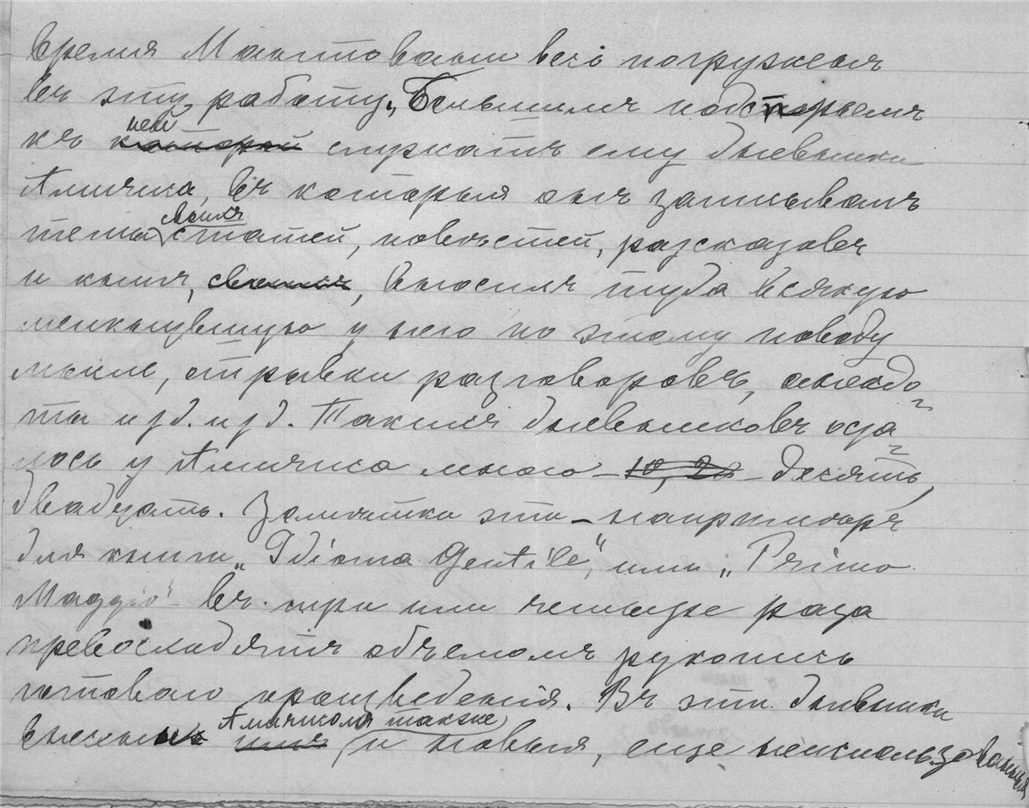 время Мантовани весь погруженъ
въ эту работу. Большимъ подспорьемъ
къ ней которой служатъ ему дневники
Амичиса, въ которыя онъ записывалъ
темы своихъ статей, повѣстей, разсказовъ
и книгъ, своихъ, вносилъ туда всякую
мелькнувшую у него по этому поводу
мысль, отрывки разговоровъ, анекдо-
ты и т.д. и т.д. Такихъ дневниковъ оста-
лось у Амичиса много – 10, 20 – десять,
двадцать. Замѣтки эти – напримѣръ
для книги „Idioma Gentile", или „Primo
Maggio" – въ три или четыре раза
превосходятъ объемомъ рукопись
готоваго произведенія. Въ эти дневники
внесены имъ Амичисомъ также и новыя, еще неиспользованныя